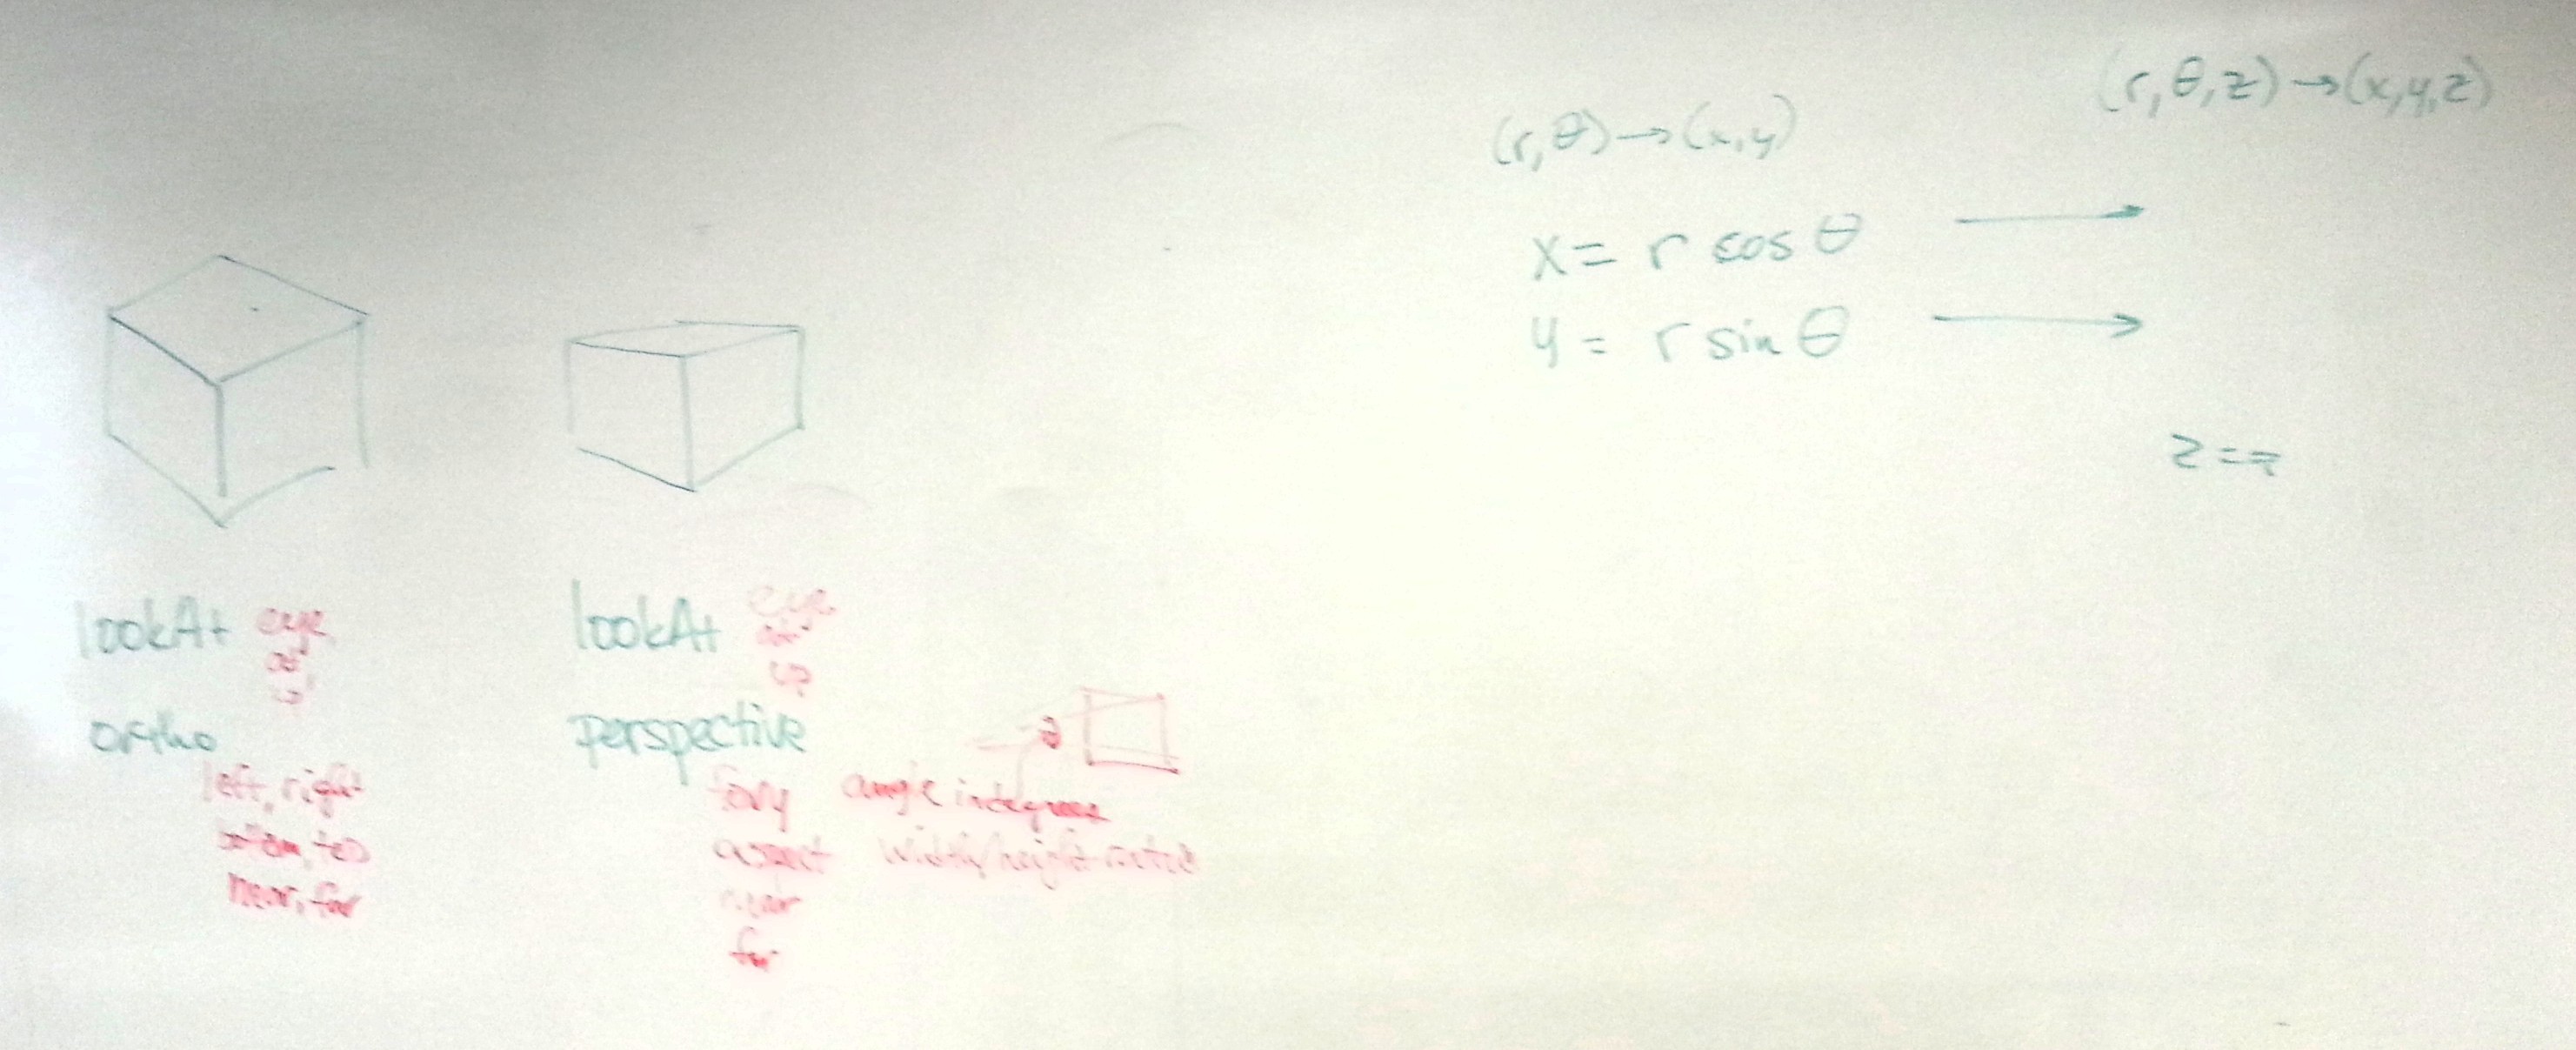 lookAt eye
at
up
ortho
left, right
bottom, top
near, far
lookAt eye
at
up
perspective
fovy angle in degrees
aspect width/height ratio
near
far
(r, θ) → (x, y)
x = r cos θ
y = r sin θ
(r, θ, z) → (x, y, z)
z = z